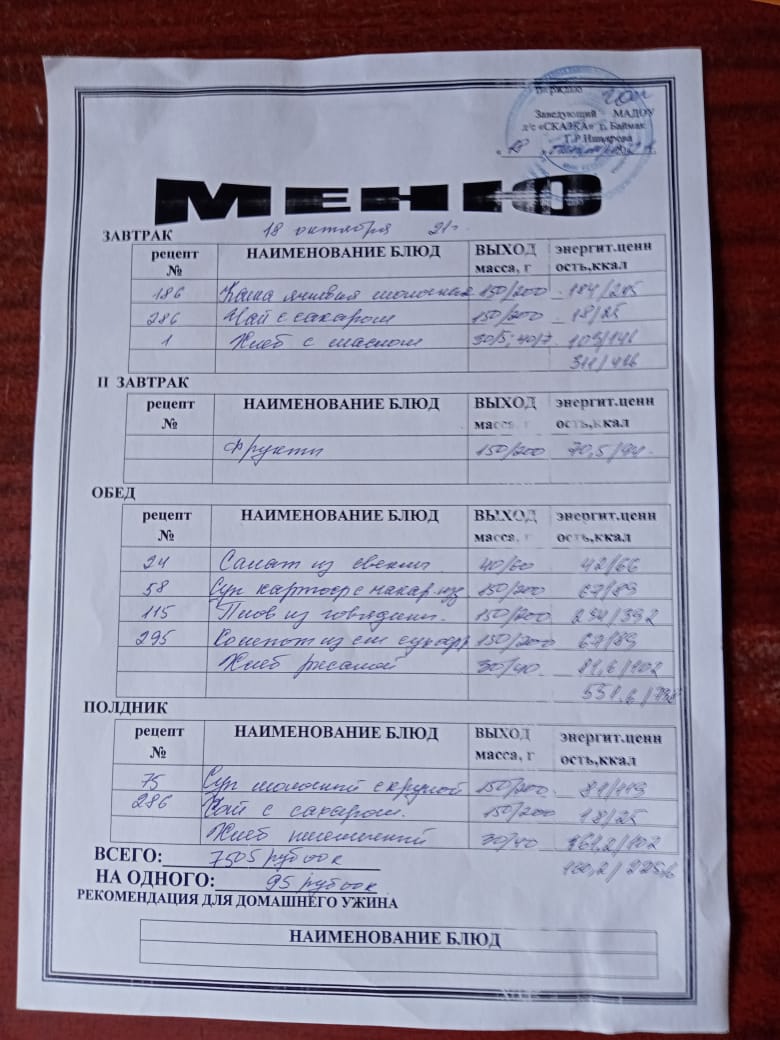 Заведующий МАДОУ
д/с «СКАЗКА» г. Баймак
18 октября 21 г.
МЕНЮ
18 октября 21г.
ЗАВТРАК
рецепт № НАИМЕНОВАНИЕ БЛЮД ВЫХОД масса, г энергит.ценн ость,ккал
186 Каша ячневая молочная 150/200 184/245
286 Чай с сахаром 150/200 18/25
1 Хлеб с маслом 30/5; 40/7 109/146
311/416
II ЗАВТРАК
рецепт № НАИМЕНОВАНИЕ БЛЮД ВЫХОД масса, г энергит.ценн ость,ккал
Фрукты 150/200 70,5/94
ОБЕД
рецепт № НАИМЕНОВАНИЕ БЛЮД ВЫХОД масса, г энергит.ценн ость,ккал
24 Салат из свеклы 40/60 42/66
58 Суп картоф с макар. из 150/200 67/89
115 Плов из говядины 150/200 294/392
295 Компот из см сухофр 150/200 67/89
Хлеб ржаной 30/40 81,6/102
551,6/738
ПОЛДНИК
рецепт № НАИМЕНОВАНИЕ БЛЮД ВЫХОД масса, г энергит.ценн ость,ккал
75 Суп молочный с крупой 150/200 81/119
286 Чай с сахаром. 150/200 18/25
Хлеб пшеничный 30/40 61,2/102
160,2/225,6
ВСЕГО: 7505 руб 00 к
НА ОДНОГО: 95 руб 00 к
РЕКОМЕНДАЦИЯ ДЛЯ ДОМАШНЕГО УЖИНА
НАИМЕНОВАНИЕ БЛЮД